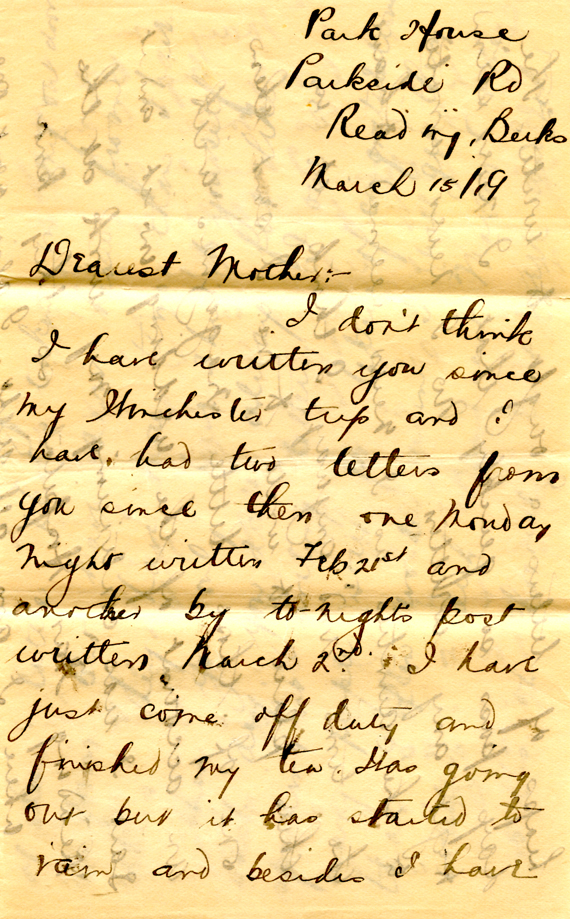 Park House
Parkside Rd
Reading, Berks
March 15/19
Dearest Mother:-
I don't think
I have written you since
my Winchester trip and I
have had two letters from
you since then one Monday
night written Feb 21st and
another by to-nights post
written March 2nd. I have
just come off duty and
finished my tea. Was going
out but it has started to
rain and besides I have